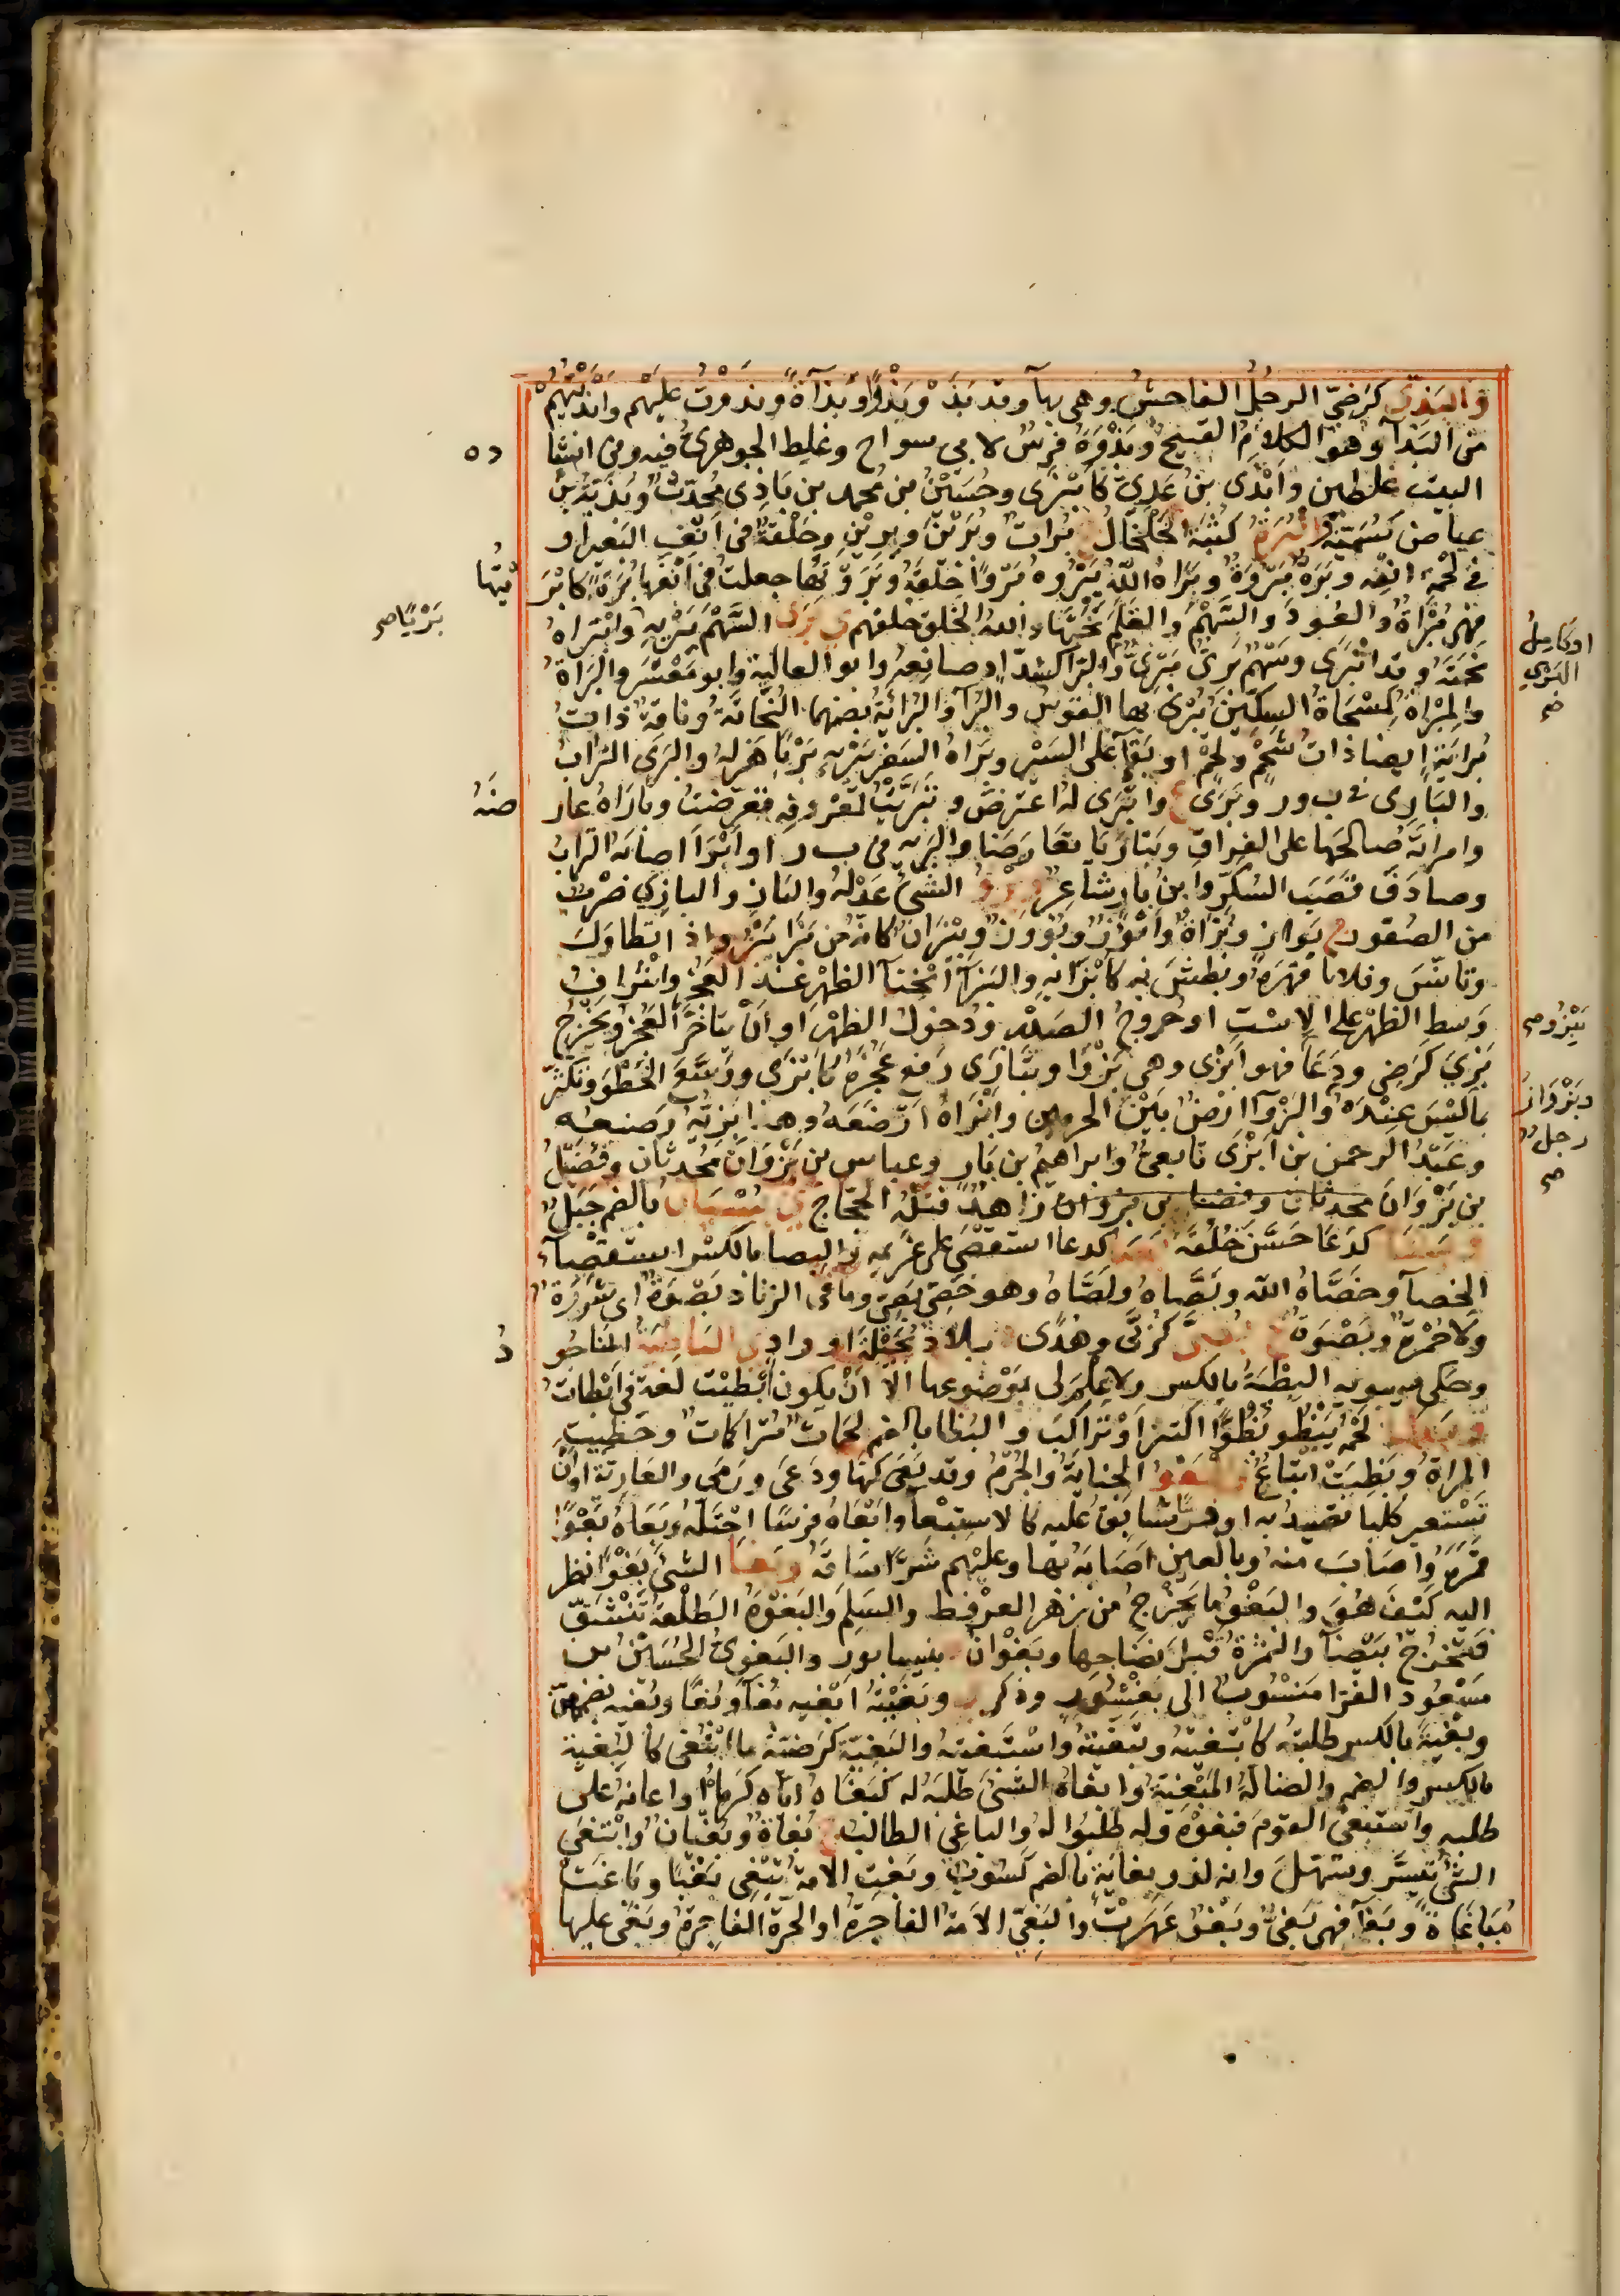 و البَذِيّ كرَضِيّ الرجُلُ الفاحشُ وهى بهآ وقد بَذُوَ وبَذُوًا وبَذآءً وبَذَوْتُ عليهم وابْذَيْتُهُمْ
من البَذآء وهو الكلام القبيحُ وبَذْوَةُ فرسٌ لابى سواج وغلط الجوهرىُّ فيه وفى انشا
ده
البيت غلطين وابْذَى بنُ عَدِيّ كابْزَى وحُسَيْنُ بن محمد بن بَاذِى مُحدّثٌ وبُذَيّةُ بنُ
عياض كسُمَيّة و البُرَةُ كثُبَة الخَلْخالُ ج بُراتٌ وبُرَيْنَ وبِرِيْنَ وحَلْقةٌ فى انفِ البَعيراو
فى لحْمة انفِه وبُرَةٌ مَبْرُوَّةٌ وبَرَاهُ اللّهُ يَبْرُوه بَرْوًا خَلَقَهُ وبَرَوْتها جعلتُ فى انفها بُرَةً كابْرَ
يْتها
فهى مُبْراةٌ والعُودَ والسَّهْمَ والقَلَمَ نَحَتَها والله الخلق خلقهم ي بَرَى السَّهْمَ يَبْرِيهِ وابْتَراه
بَرْيًا صح
نحَتَهُ وقد انْبَرَى وسَهْمٌ بَرِىٌّ مَبْرِىٌّ والبَرّآ كشدّاد صانعُه وابو العالية وابو مَعْشَرٍ والبَرّاةُ
او كامِلُ
البَرْيِ
صح
والمِبْراةُ كمِسْحَاةٍ السِكّينُ يُبْرَى بها القوسُ والبُرآ والبُرايَةُ بضمهما النُحَاتَةُ وناقةٌ ذاتُ
بُرايَةٍ ايضا ذاتُ شَحْمٍ ولحْمٍ او بَقآءٍ على السَيْرِ وبَراهُ السَفَر يَبْرِيهِ بَرْيًا هَزلهُ والبَرَى التُرابُ
والبَارِى فى ب ور وبَرَى ع وانْبَرَى له اعترَضَ وتَبَرَّيْتُ لمَعْروفِهِ تَعَرّضتُ وبارَاهُ عار
ضَهُ
وامراتَهُ صَالحَها على الفِراقِ وتَبَارَيَا تعَارَضَا والبَريّه فى ب ر ا وابْرَا اصابَهُ الترابُ
وصادَفَ قَصَبَ السُكّر وابنُ بارٍ شاعِرٌ و بَزْوُ الشىءِ عَدْلُهُ والبَازِ والبازِي ضرْبٌ
من الصُقُور ج بَوازٍ وبُزَاةٌ وابْوُزٌ وبُؤُوزٌ وبِيزَانٌ كانهُ من بَزَا يَبْزُو اذا تطاوَلَ
وتانّسَ وفلانا قهَرَهُ وبَطَشَ به كابْزَا به والبَزَآ انْحِنآ الظهْر عندَ العجُز واشْرافُ
وَسطِ الظهْر على الاسْتِ او خُروجُ الصَدْر ودُخولُ الظهْر او انْ يتاخرَ العَجُز ويَخْرُج
يَبْزُو صح
بَزِيَ كرَضِى ودَعَا فهو ابْزَى وهى بَزْوَا وتَبازَى رَفع عَجُزَهُ كابْزَى ووَسَّعَ الخَطْوَ وتَكثّر
وبَزْوَانُ
رجلٌ
صح
بما ليْسَ عِنْدَهُ والبَزْوآ ارضٌ بَيْن الحرمين وابْزَاهُ ارْضَعَهُ وهذا بَزِيّهُ رَضيعُه
وعَبْدُ الرحمن بن ابْزَى تابعىٌّ وابراهيمُ بن بَازٍ وعباس بن بَزْوَانَ مُحدثان وفضَيْلُ
بن بَزْوَانَ زاهدٌ قتَلهُ الحَجّاج ي بُسْيَانُ بالضم جَبَلٌ
و بَشَا كدَعَا حَسَّنَ خُلُقَهُ و بَصَا كدعا استقْصَى على غَرِيمه والبِصا بالكسْر استقصآء
الخِصآ وخَصَّاهُ الله وبَصَّاهُ ولَصَّاهُ وهو خَصِىّ بَصِىّ وما فى الرماد بَصْوَةٌ اى شَرَرَةٌ
ولا جَمْرَةٌ وبَصْوَةُ ع ي بُضَّى كرُبَّى وهُدًى ببلاد بَجِيلةَ او وادٍ ي الباطِيَةُ النَاجُو
دُ
وحكى سيبويه البِطْيَةُ بالكسر ولا عِلْمَ لى بمَوْضوعها الا انْ يكون ابْطَيْت لغة فى ابْطاتُ
و بَظَا لحْمُهُ يَبْظُو بُظُوًّا اكتنزَ وتراكَبَ والبُظا بالضم لحَمَاتٌ مُتراكِماتٌ وحَظِيَت
المراةُ وبَظِيَتْ اتباعٌ و البَعْوُ الجناية والجُرمُ وقد بَعَى كنَهَا ودَعَى ورَمَى والعارِيّةُ اوانْ
تَسْتعير كلبا تصيدُ به او فرسًا تُسابِقُ عليه كالاستبعآ وابْعَاهُ فرسًا اخْبَلَهُ وبَعَاهُ بَعْوًا
قمَرَهُ واصابَ منهُ وبالعين اصَابَهُ بها وعليْهم شَرًّا ساقَهُ و بَغَا الشىءَ بَغْوًا نظر
اليه كيْفَ هُوَ والبَغْوُ ما يَخْرُج من زهْرَ العرْفُط والسَلَم والبَغْوَةُ الطَلْعة تَنْشَقّ
فتَخرُجُ بَيْضآ والثمَرَةُ قبْلَ نَضَاجها وبَغْوَانُ بنيسابور والبَغوىُّ الحُسَيْنُ بن
مَسْعُود الفرّا مَنسُوبٌ الى بغشُور وذكر ي وبَغَيْتُهُ ابْغيه بُغآ وبُغًا وبُغْيَةً بضمهنّ
وبِغْيَةً بالكسر طلبتُه كابْتَغيتُه وتبغّيتُه واسْتَبغيتُه والبَغِيّة كرَضِيّة ما ابْتُغِى كالبِغْيَة
بالكسر والضم والضالّةُ المَبْغِيّةُ وابغاهُ الشىءَ طَلبَهُ له كبَغاهُ ايّاه كرَمَاهُ او اعانهُ على
طلبه واستبْغَى القومَ فبغَوْهُ وله طلبُوا لهُ والباغِى الطالب ج بُغاةٌ وبُغْيَانٌ وابْتغَى
الشىءُ تيسَّر وتسهّلَ وانه لذو بُغَايَة بالضم كسُوبٌ وبَغتِ الامةُ تَبْغِى بَغْيًا وباغَتْ
مُبَاغَاةً وبِغآ فهى بَغِىٌّ وبَغُوٌّ عَهَرَتْ والبَغِىّ الاَمَةُ الفاجرةُ او الحُرّة الفاجرة وبَغَى عليها